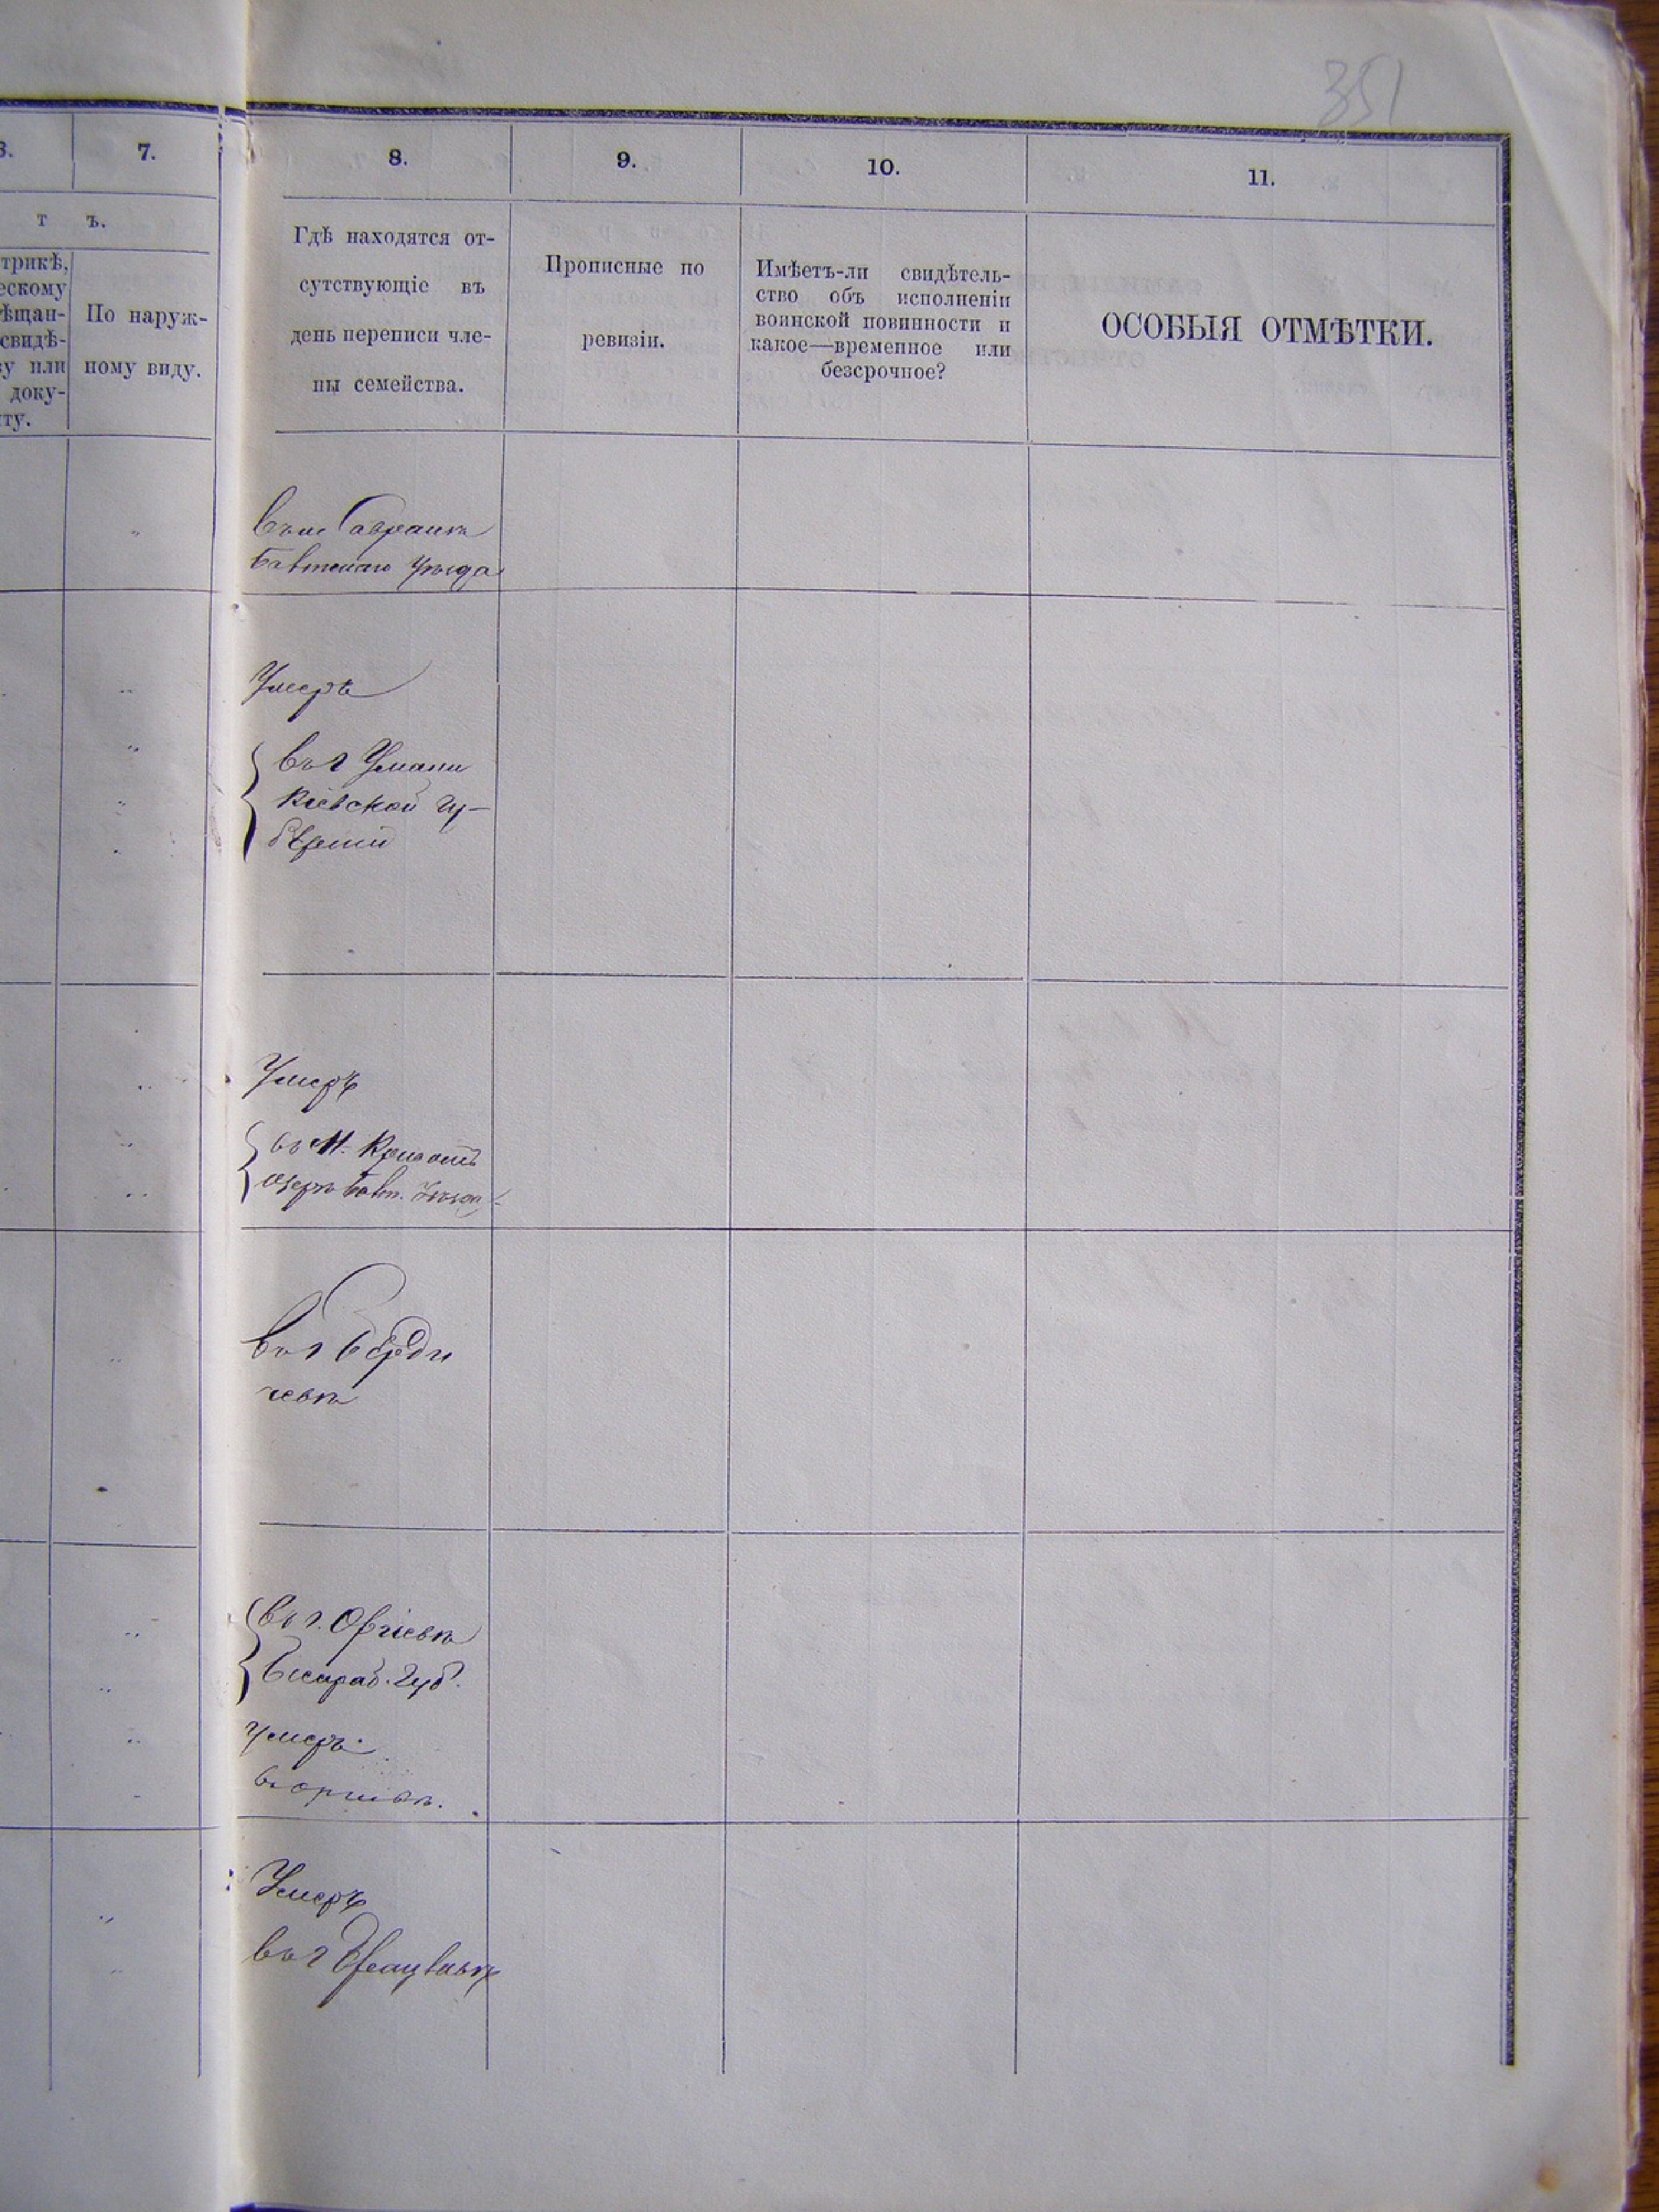 351
7.
8.
9.
10.
11.
т ъ.
трикѣ,
ескому
ѣщан-
свидѣ-
ву или
доку-
ту.
По наруж-
ному виду.
Гдѣ находятся от-
сутствующіе въ
день переписи чле-
ны семейства.
Прописные по
ревизіи.
Имѣетъ-ли свидѣтель-
ство объ исполненіи
воинской повинности и
какое—временное или
безсрочное?
ОСОБЫЯ ОТМѢТКИ.
Въ м Саврани
Балтскаго Уѣзда
Умеръ
Въ г Умани
Кіевской гу-
берніи
Умеръ
въ М. Кривомъ
Озерѣ Балт. Уѣзда
Въ г Берди
чевѣ
Въ г. Оргіевѣ
Бесараб. Губ.
Умеръ
Въ Оргіевѣ.
Умеръ
Въ г